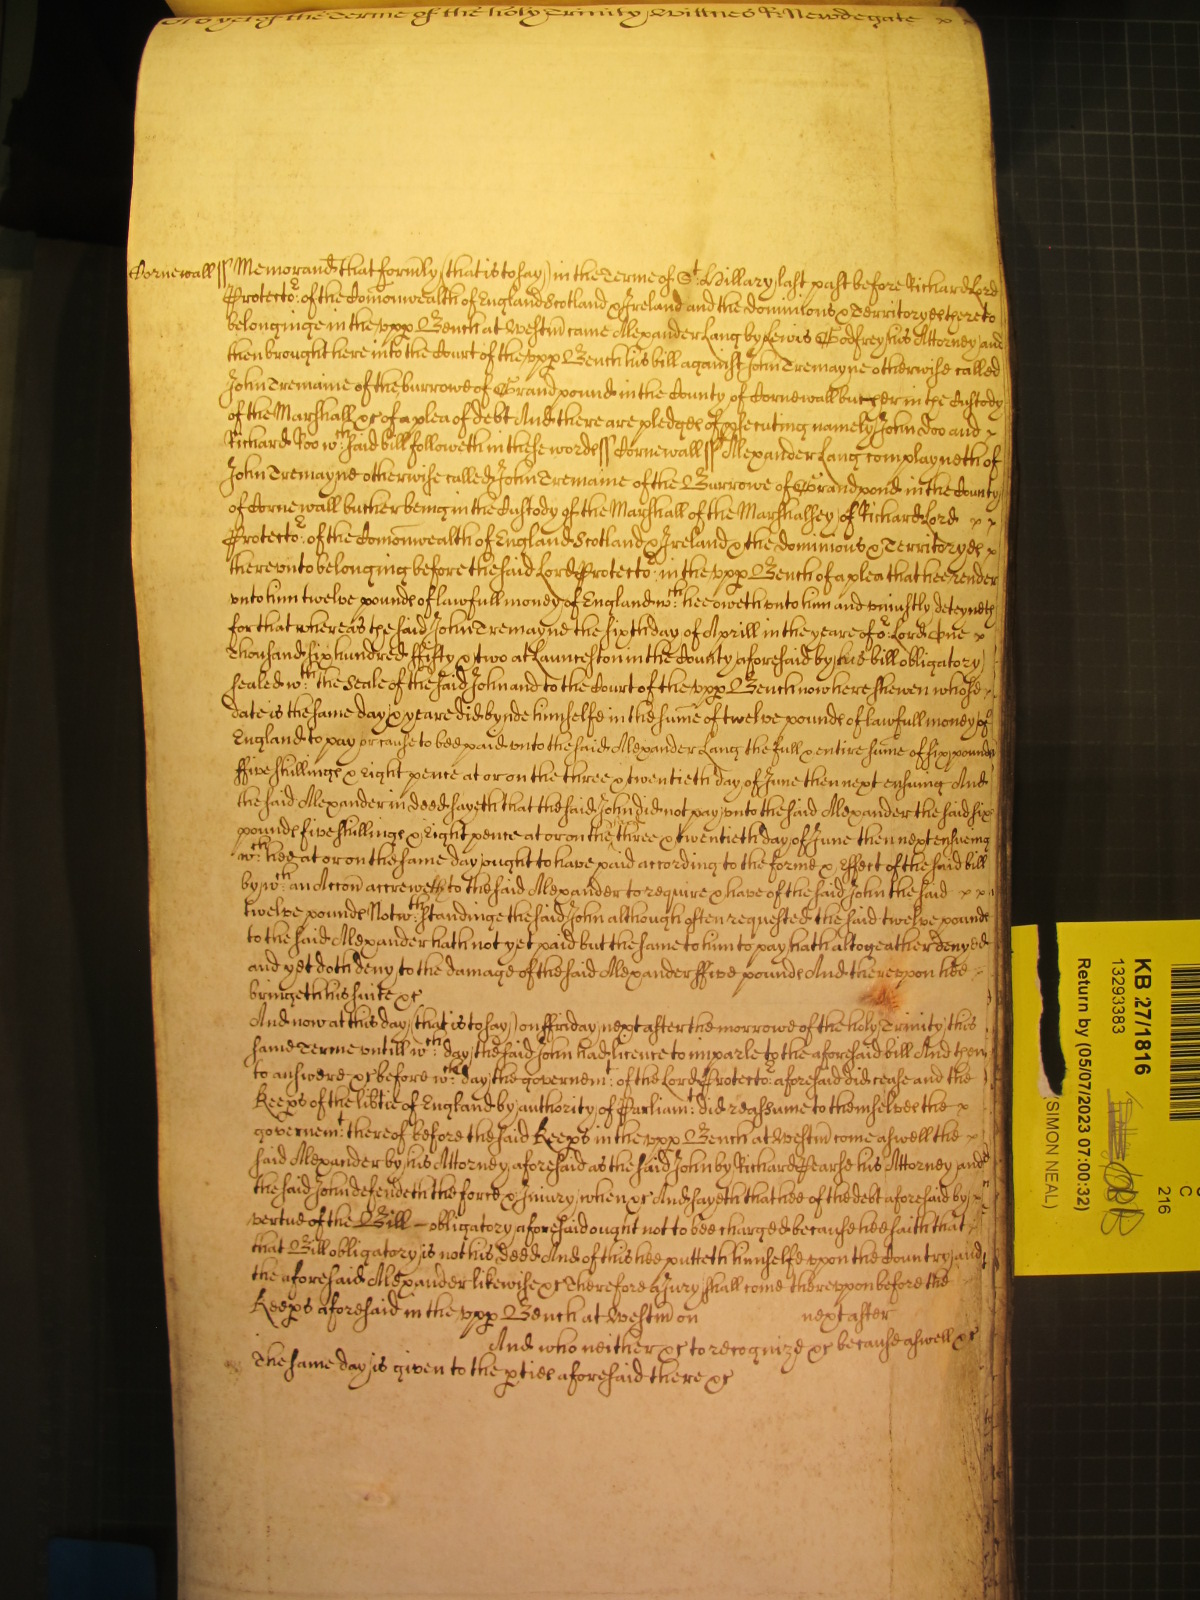 of the Terme of the holy Trinity Wittnes R: Newdegate
Cornewall ss Memorand that formly (that is to say) in the Terme of St Hillary last past before Richard Lord
Protector of the Comonwealth of England Scotland & Ireland and the dominions & Territoryes thereto
belonginge in the vpp Bench at Westm came Alexander Lang by Lewis Godfrey his Attorney and
then brought here into the Court of the vpp Bench his bill against John Tremayne otherwise called
John Tremaine of the burrowe of Grandpound in the County of Cornewall butcher in the Custody
of the Marshall &c of a plea of debt And there are pledges of psecuting namely John Doo and
Richard Roo wch said bill followeth in these words ss Cornewall ss Alexander Lang complayneth of
John Tremayne otherwise called John Tremaine of the Burrowe of Grandpond in the County
of Cornewall butcher being in the Custody of the Marshall of the Marshalsey of Richard Lord
Protector of the Comonwealth of England Scotland & Ireland & the dominions & Territoryes
therevnto belonging before the said Lord Protector in the vpp Bench of a plea that hee render
vnto him twelve pounds of lawfull money of England wch hee oweth vnto him and vniustly deteyneth
for that whereas the said John Tremayne the sixth day of Aprill in the yeare of or Lord One
Thousand six hundred ffifty & two at Launceston in the County aforesaid by his bill obligatory
sealed wth the Seale of the said John and to the Court of the vpp Bench now here shewen whose
date is the same day & yeare did bynde himselfe in the sume of twelve pounds of lawfull money of
England to pay or cause to bee paid vnto the said Alexander Lang the full & entire sume of six pounds
ffive shillings & Eight pence at or on the three & twentieth day of June then next ensuing And
the said Alexander in deed sayeth that the said John did not pay vnto the said Alexander the said six
pounds five shillings & Eight pence at or on the three & twentieth day of June then next ensueing
wch hee at or on the same day ought to have paid according to the forme & Effect of the said bill
by wch an Accon accreweth to the said Alexander to require & have of the said John the said
twelve pounds Notwthstandinge the said John although often requested the said twelve pounds
to the said Alexander hath not yet paid but the same to him to pay hath altogeather denyed
and yet doth deny to the damage of the said Alexander ffive pounds And therevpon hee
bringeth his suite &c
And now at this day (that is to say) on ffriday next after the morrowe of the holy Trinity this
same Terme vntill wch day the said John had licence to imparle to the aforesaid bill And then
to answere &c before wch day the governemt of the Lord Protector aforesaid did cease and the
Keeps of the libtie of England by authority of Parliamt did reassume to themselves the
governemt thereof before the said Keeps in the vpp Bench at Westm come aswell the
said Alexander by his Attorney aforesaid as the said John by Richard Pearse his Attorney and
the said John defendeth the force & Iniury when &c And sayeth that hee of the debt aforesaid by
vertue of the Bill obligatory aforesaid ought not to bee charged because hee saith that
that Bill obligatory is not his deed And of this hee putteth himselfe vpon the Country and
the aforesaid Alexander likewise &c Therefore a Jury shall come therevpon before the
Keeps aforesaid in the vpp Bench at Westm on next after
And who neither &c to recognize &c because aswell &c
The same day is given to the pties aforesaid there &c
KB 27/1816
13293383
Return by (05/07/2023 07:00:32)
(SIMON NEAL)
C
216